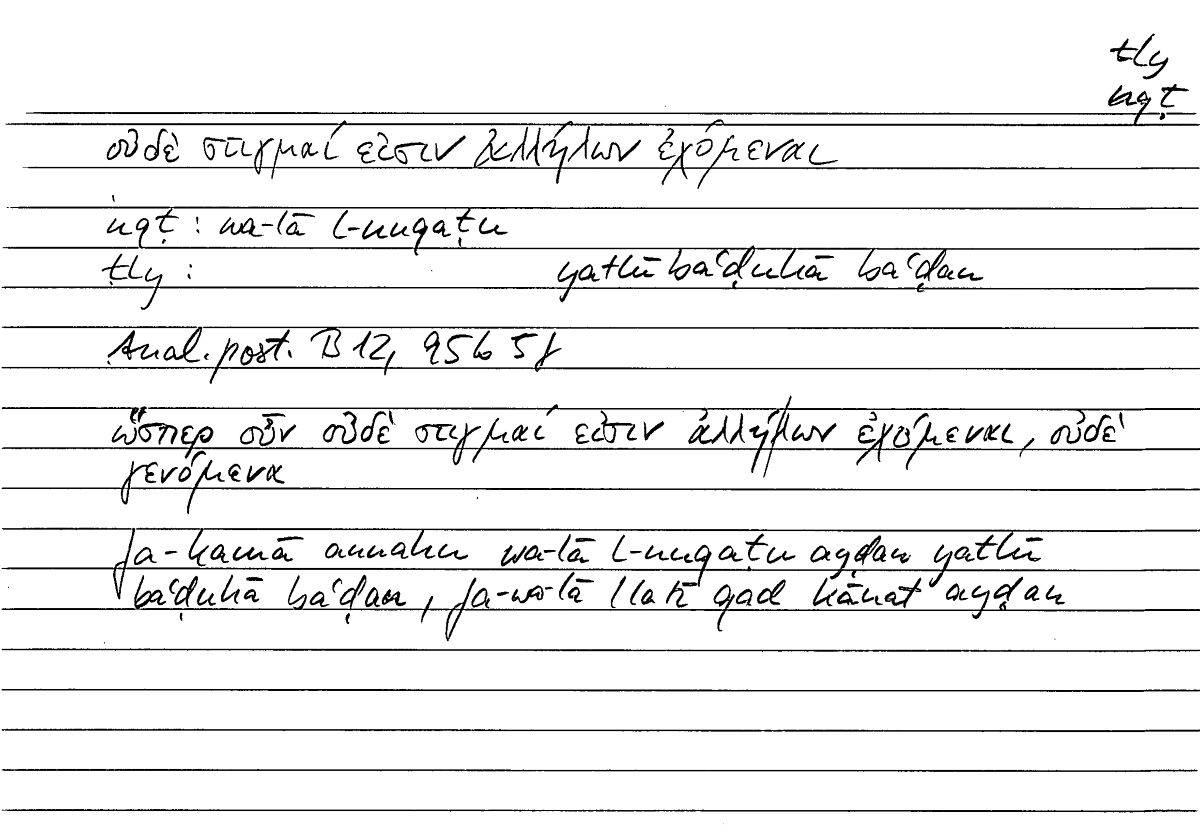 tly
nqṭ
οὐδὲ στιγμαί εἰσιν ἀλλήλων ἐχόμεναι
nqṭ : wa-lā l-nuqaṭu
tly : yatlū baʿḍuhā baʿḍan
Anal. post. B 12, 95b 5f
ὥσπερ οὖν οὐδὲ στιγμαί εἰσιν ἀλλήλων ἐχόμεναι, οὐδὲ
γενόμενα
fa-kamā annahu wa-lā l-nuqaṭu ayḍan yatlū
baʿḍuhā baʿḍan, fa-wa-lā llatī qad kānat ayḍan